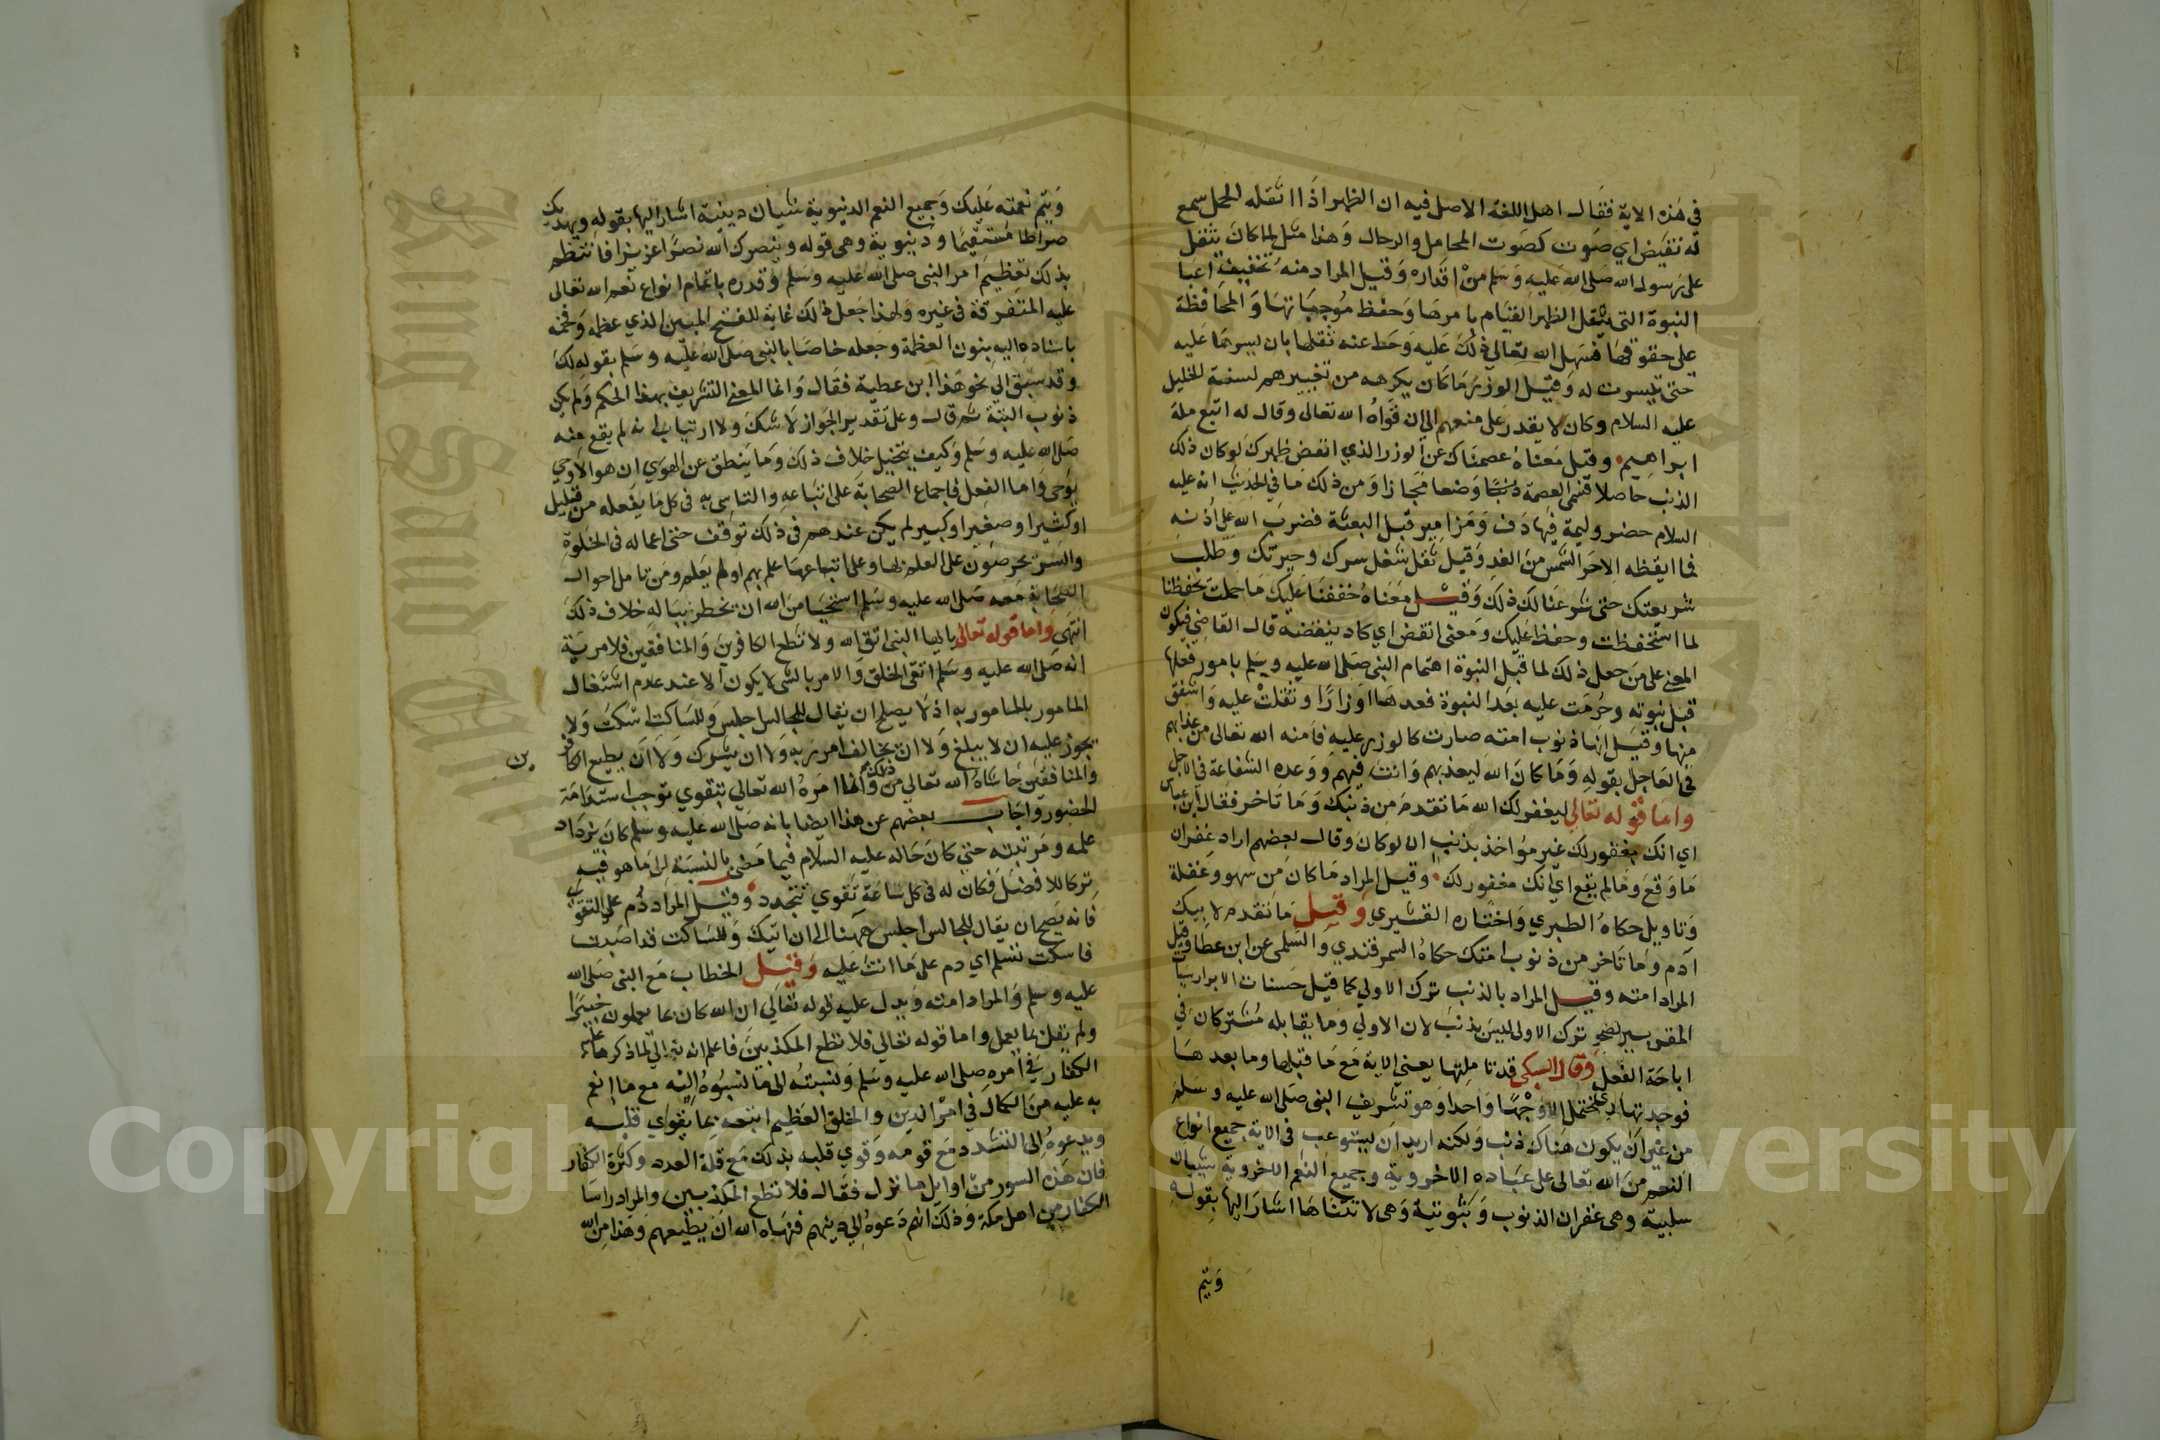 في هذه الاية فقال اهل اللغة الاصل فيه ان الظهر اذا اثقله الحمل سمع
له نقيض اي صوت كصوت المحامل والرحال وهذا مثل لما كان يثقل
على رسول الله صلى الله عليه وسلم من اقداره وقيل المراد منه تخفيف اعبا
النبوة التي يثقل الظهر القيام بامرها وحفظ موجباتها والمحافظة
على حقوقها فسهل الله تعالى ذلك عليه وحط عنه ثقلها بان يسرها عليه
حتى تيسرت له وقيل الوزر ما كان يكرهه من تغييرهم لسنة الخليل
عليه السلام وكان لا يقدر على منعهم الى ان قواه الله تعالى وقال له اتبع ملة
ابراهيم وقيل معناه عصمناك عن الوزر الذي انقض ظهرك لو كان ذلك
الذنب حاصلا فسمى العصمة وضعا مجازا ومن ذلك ما في الحديث انه عليه
السلام حضر وليمة فيها دف ومزامير قبل البعثة فضرب الله على اذنه
فما ايقظه الا حر الشمس من الغد وقيل ثقل شغل سرك وحيرتك وطلب
شريعتك حتى شرعنا لك ذلك وقيل معناه خففنا عليك ما حملت بحفظنا
لما استحفظت وحفظ عليك ومعنى انقض اي كاد ينقضه قال القاضي فيكون
المعنى على من جعل ذلك لما قبل النبوة اهتمام النبي صلى الله عليه وسلم بامور فعلها
قبل نبوته وحرمت عليه بعد النبوة فعدها اوزارا وثقلت عليه واشفق
منها وقيل انها ذنوب امته صارت كالوزر عليه فآمنه الله تعالى من عذابهم
في العاجل بقوله وما كان الله ليعذبهم وانت فيهم ووعده الشفاعة في الاجل
واما قوله تعالى ليغفر لك الله ما تقدم من ذنبك وما تاخر فقال ابن عباس
اي انك مغفور لك غير مؤاخذ بذنب ان لو كان وقال بعضهم اراد غفران
ما وقع وما لم يقع اي انك مغفور لك وقيل المراد ما كان من سهو وغفلة
وتاويل حكاه الطبري واختاره القشيري وقيل ما تقدم لابيك
آدم وما تاخر من ذنوب امتك حكاه السمرقندي والسلمي عن ابن عطا وقيل
المراد امته وقيل المراد بالذنب ترك الاولى كما قيل حسنات الابرار سيا
المقربين ترك الاولى ليس بذنب لان الاولى وما يقابله مشتركان في
اباحة الفعل وقال السبكي قد تاملتها يعني الاية مع ما قبلها وما بعدها
فوجدتها لا تحتمل الا وجها واحدا وهو تشريف النبي صلى الله عليه وسلم
من غير ان يكون هناك ذنب ولكنه اريد ان يستوعب في الاية جميع انواع
النعم من الله تعالى على عباده الاخروية وجميع النعم الاخروية شيئان
سلبية وهي غفران الذنوب وثبوتية وهي لا تتناها اشار اليها بقوله
ويتم
ويتم نعمته عليك وجميع النعم الدنيوية شيان دينية اشار اليها بقوله ويهديك
صراطا مستقيما ودنيوية وهي قوله وينصرك الله نصرا عزيزا فانتظم
بذلك تعظيم امر النبي صلى الله عليه وسلم وقدره باتمام انواع نعم الله تعالى
عليه المتفرقة في غيره ولهذا جعل ذلك غاية للفتح المبين الذي عظمه وفخمه
باسناده اليه بنون العظمة وجعله خاصا بالنبي صلى الله عليه وسلم بقوله لك
وقد سبق الي نحو هذا ابن عطية فقال وانما المعنى التشريف بهذا الحكم ولم يكن
ذنوب البتة ثم قال وعلى تقدير الجواز لا شك ولا ارتياب انه لم يقع منه
صلى الله عليه وسلم وكيف يتخيل خلاف ذلك وما ينطق عن الهوى ان هو الا وحي
يوحى واما الفعل فاجماع الصحابة على اتباعه والتاسي به في كل ما يفعله من قليل
او كثير او صغير او كبير لم يكن عندهم في ذلك توقف حتى اعماله في الخلوة
والسر يحرصون على العلم بها وعلى اتباعها علم بهم او لم يعلم ومن تامل احوال
الصحابة معه صلى الله عليه وسلم استحيا من الله ان يخطر بباله خلاف ذلك
انتهى واما قوله تعالى يا ايها النبي اتق الله ولا تطع الكافرين والمنافقين فلا مرية
انه صلى الله عليه وسلم اتقى الخلق والامر بالشي لا يكون الا عند عدم اشتغال
المامور بالمامور به اذ لا يصلح ان يقال للجالس اجلس وللساكت اسكت ولا
يجوز عليه ان لا يبلغ ولا ان يخالف امر ربه ولا ان يشرك ولا ان يطيع الكافرين
والمنافقين حاشاه الله تعالى من ذلك وانما امره الله تعالى بتقوى توجب استدامة
الحضور واجاب بعضهم عن هذا ايضا بانه صلى الله عليه وسلم كان يزداد
علمه ومرتبته حتى كان حاله عليه السلام فيما مضى بالنسبة الى ما هو فيه
تركا للافضل فكان له في كل ساعة تقوى تتجدد وقيل المراد دم على التقوى
فانه يصح ان يقال للجالس اجلس ههنا الى ان اتيك وللساكت قد اصبت
فاسكت تسلم اي دم على ما انت عليه وقيل الخطاب مع النبي صلى الله
عليه وسلم والمراد امته ويدل عليه قوله تعالى ان الله كان بما تعملون خبيرا
ولم يقل بما يعمل واما قوله تعالى فلا تطع المكذبين فاعلم انه تعالى لما ذكر ما عليه
الكفار في امره صلى الله عليه وسلم ونسبته الى ما نسبوه اليه مع ما انعم
به عليه من الكمال في امر الدين والخلق العظيم اتبعه بما يقوي قلبه
ويدعوه الى التشدد مع قومه وقوى قلبه بذلك مع قلة العدد وكثرة الكفار
فان هذه السورة من اوايل ما نزل فقال فلا تطع المكذبين والمراد راسا
الكفار من اهل مكة وذلك انهم دعوه الى دينهم فنهاه الله ان يطيعهم وهذا من الله
King Saud University
Copyright © King Saud University